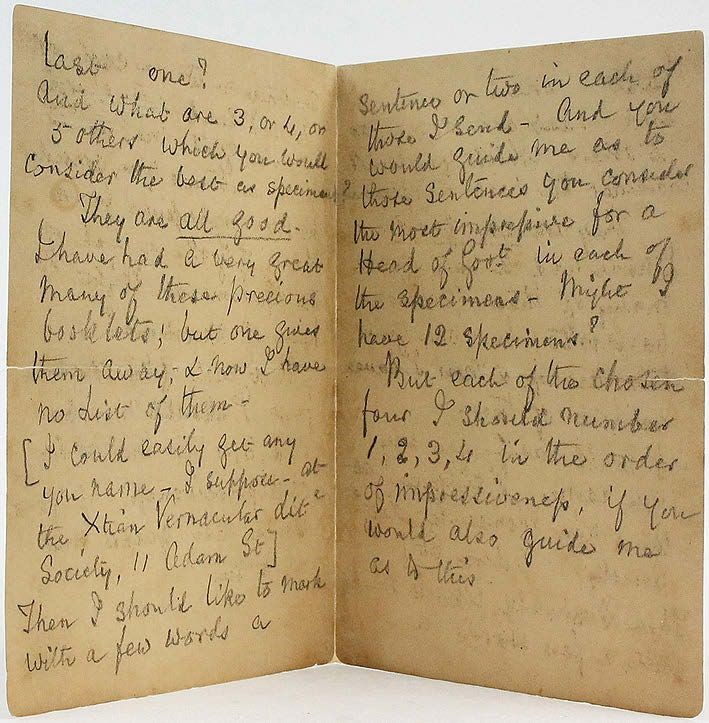 last one?
And what are 3, or 4, or
5 others which you would
consider the best as specimens?
They are all good -
I have had a very great
many of these precious
booklets; but one gives
them away, & now I have
no List of them -
[I could easily get any
you name - I suppose - at
the Xtian Vernacular Lit^e
Society, 11 Adam St]
Then I should like to mark
with a few words a
sentence or two in each of
those I send - And you
would guide me as to
those sentences you consider
the most impressive for a
Head of Gov^t in each of
the specimens - Might I
have 12 specimens?
But each of the chosen
four I should number
1, 2, 3, 4 in the order
of impressiveness, if you
would also guide me
as to this